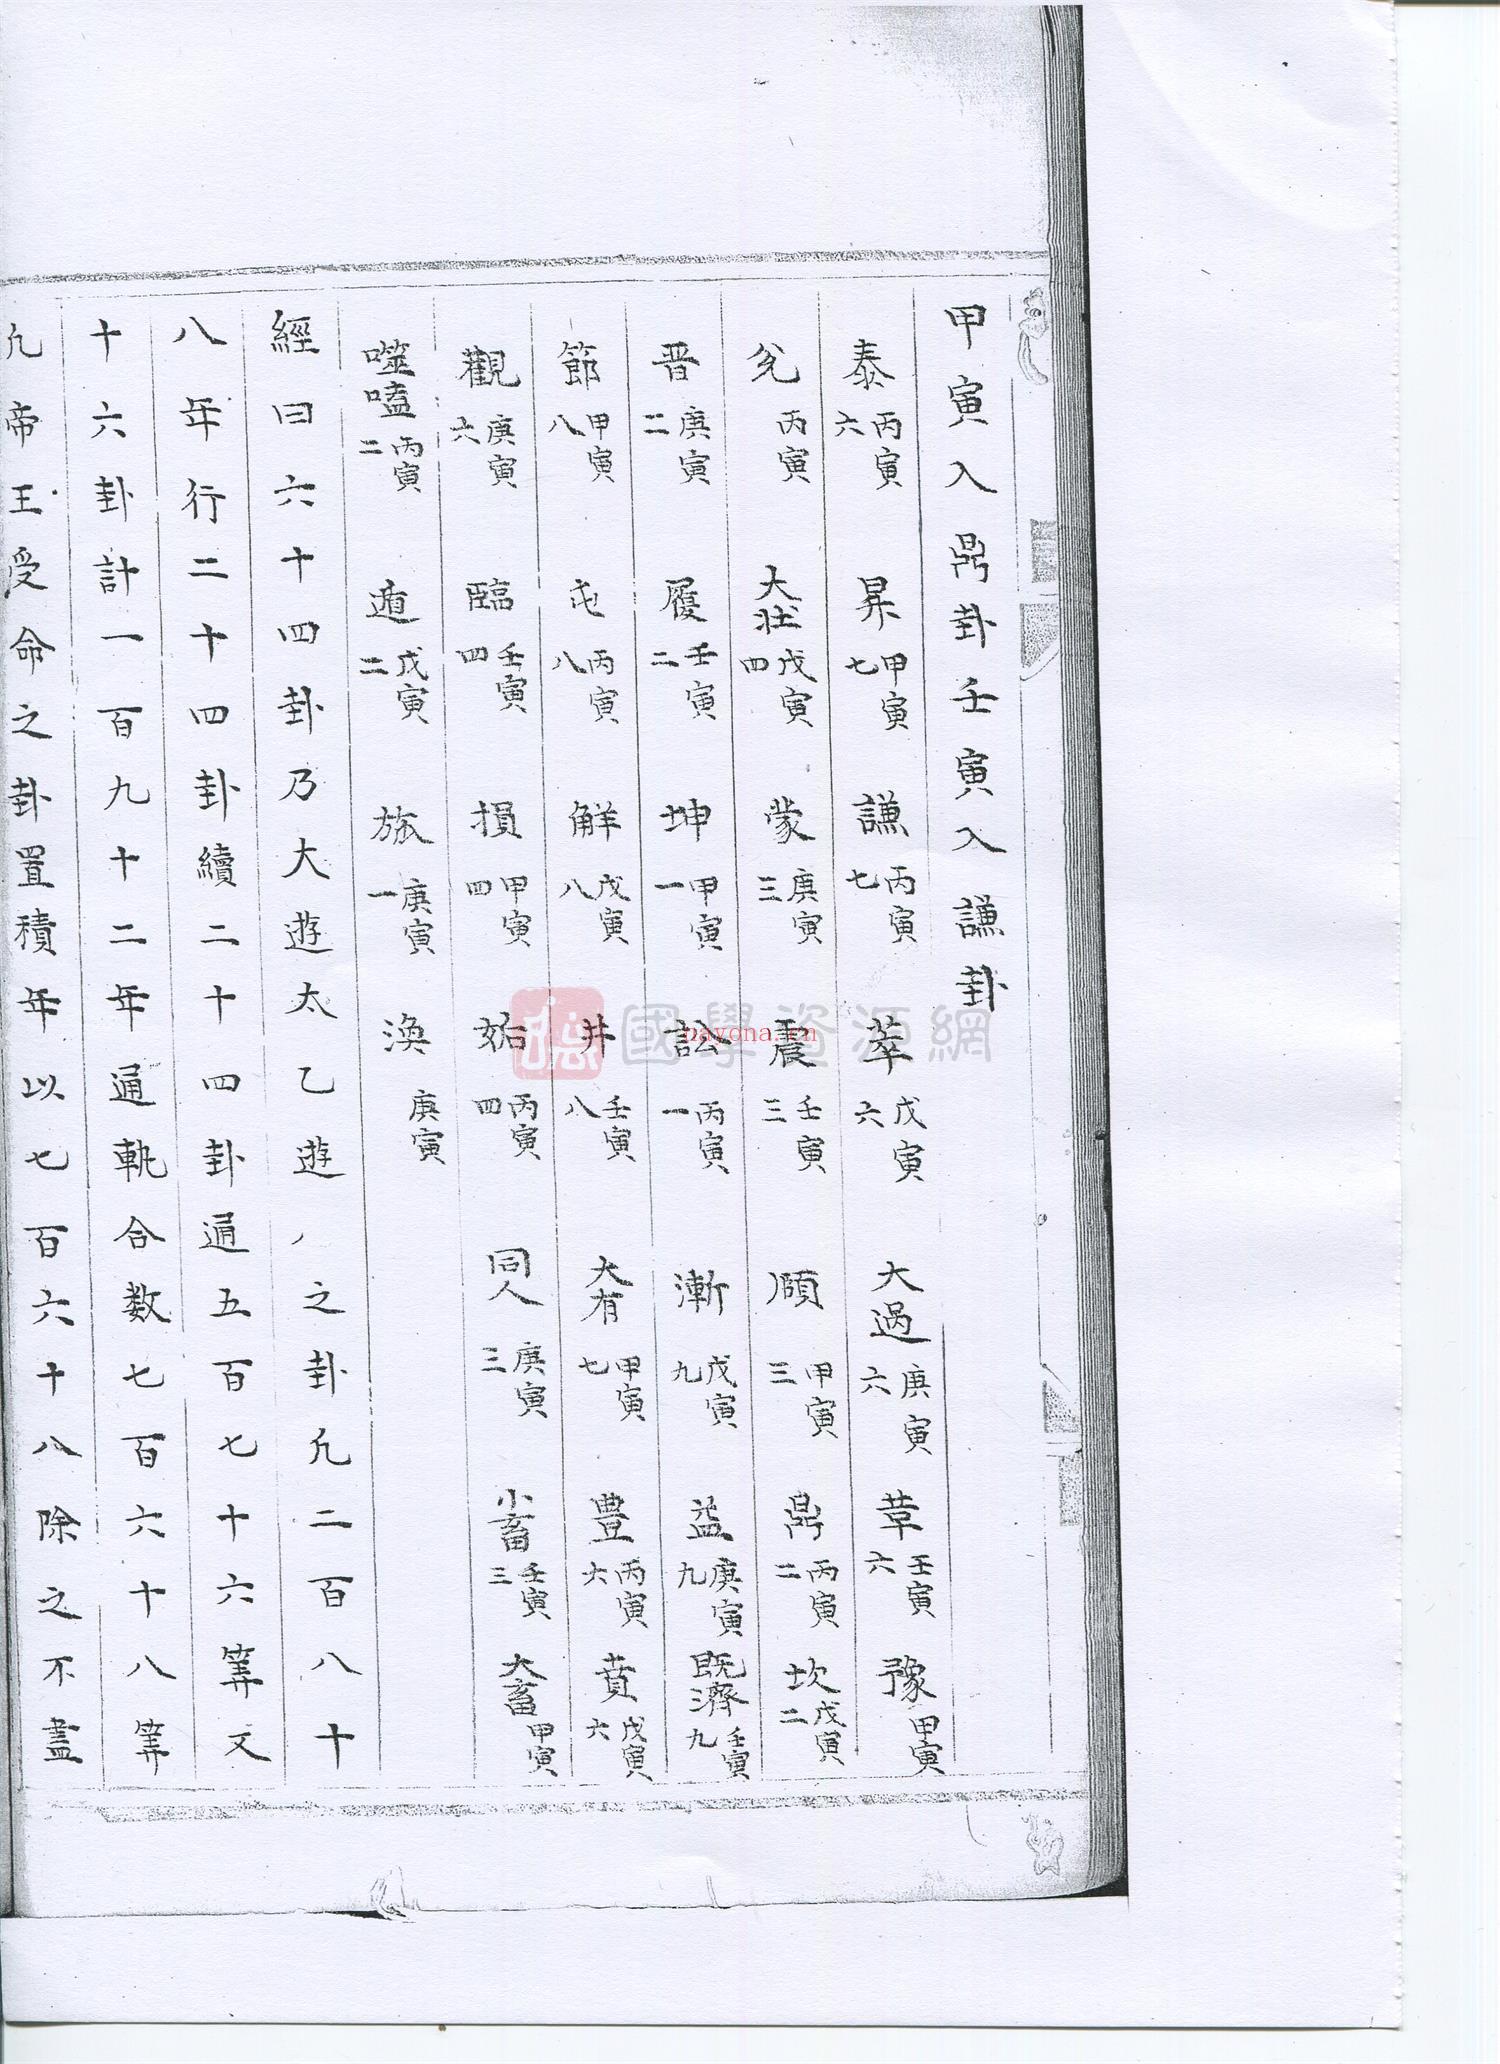 甲寅入鼎卦壬寅入謙卦
泰丙寅六 昇甲寅七 謙丙寅七 萃戊寅六 大過庚寅六 革壬寅六 豫甲寅
兊丙寅 大壯戊寅四 蒙庚寅三 震壬寅三 頤甲寅三 鼎丙寅二 坎戊寅二
晋庚寅二 履壬寅二 坤甲寅一 訟丙寅一 漸戊寅九 益庚寅九 既濟壬寅九
節甲寅八 屯丙寅八 解戊寅八 井壬寅八 大有甲寅七 豊丙寅六 賁戊寅六
觀庚寅六 臨壬寅四 損甲寅四 姤丙寅四 同人庚寅三 小畜壬寅三 大畜甲寅
噬嗑丙寅二 遁戊寅二 旅庚寅一 渙庚寅
經曰六十四卦乃大遊太乙遊八之卦凣二百八十
八年行二十四卦續二十四卦通五百七十六筭又
十六卦計一百九十二年通軌合数七百六十八筭
凣帝王受命之卦置積年以七百六十八除之不盡
國學資源網
nayona.cn